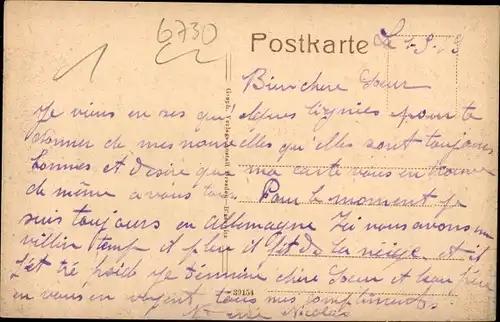 6730
Postkarte
Le 1-9-18
Bien chere Sœur
Je viens en ses quelques lignies pour te
donner de mes nouvelles qui elles sont toujours
bonnes et desire que ma carte vous en trouve
de même a vous tous Pour le moment je
suis toujours en Allemagne Ici nous avons un
villin temp il pleu il de la neige et il
fét tré froid je termine chère Sœur et beau frère
en vous en voyent tous mes compliments
Nicolas
39154